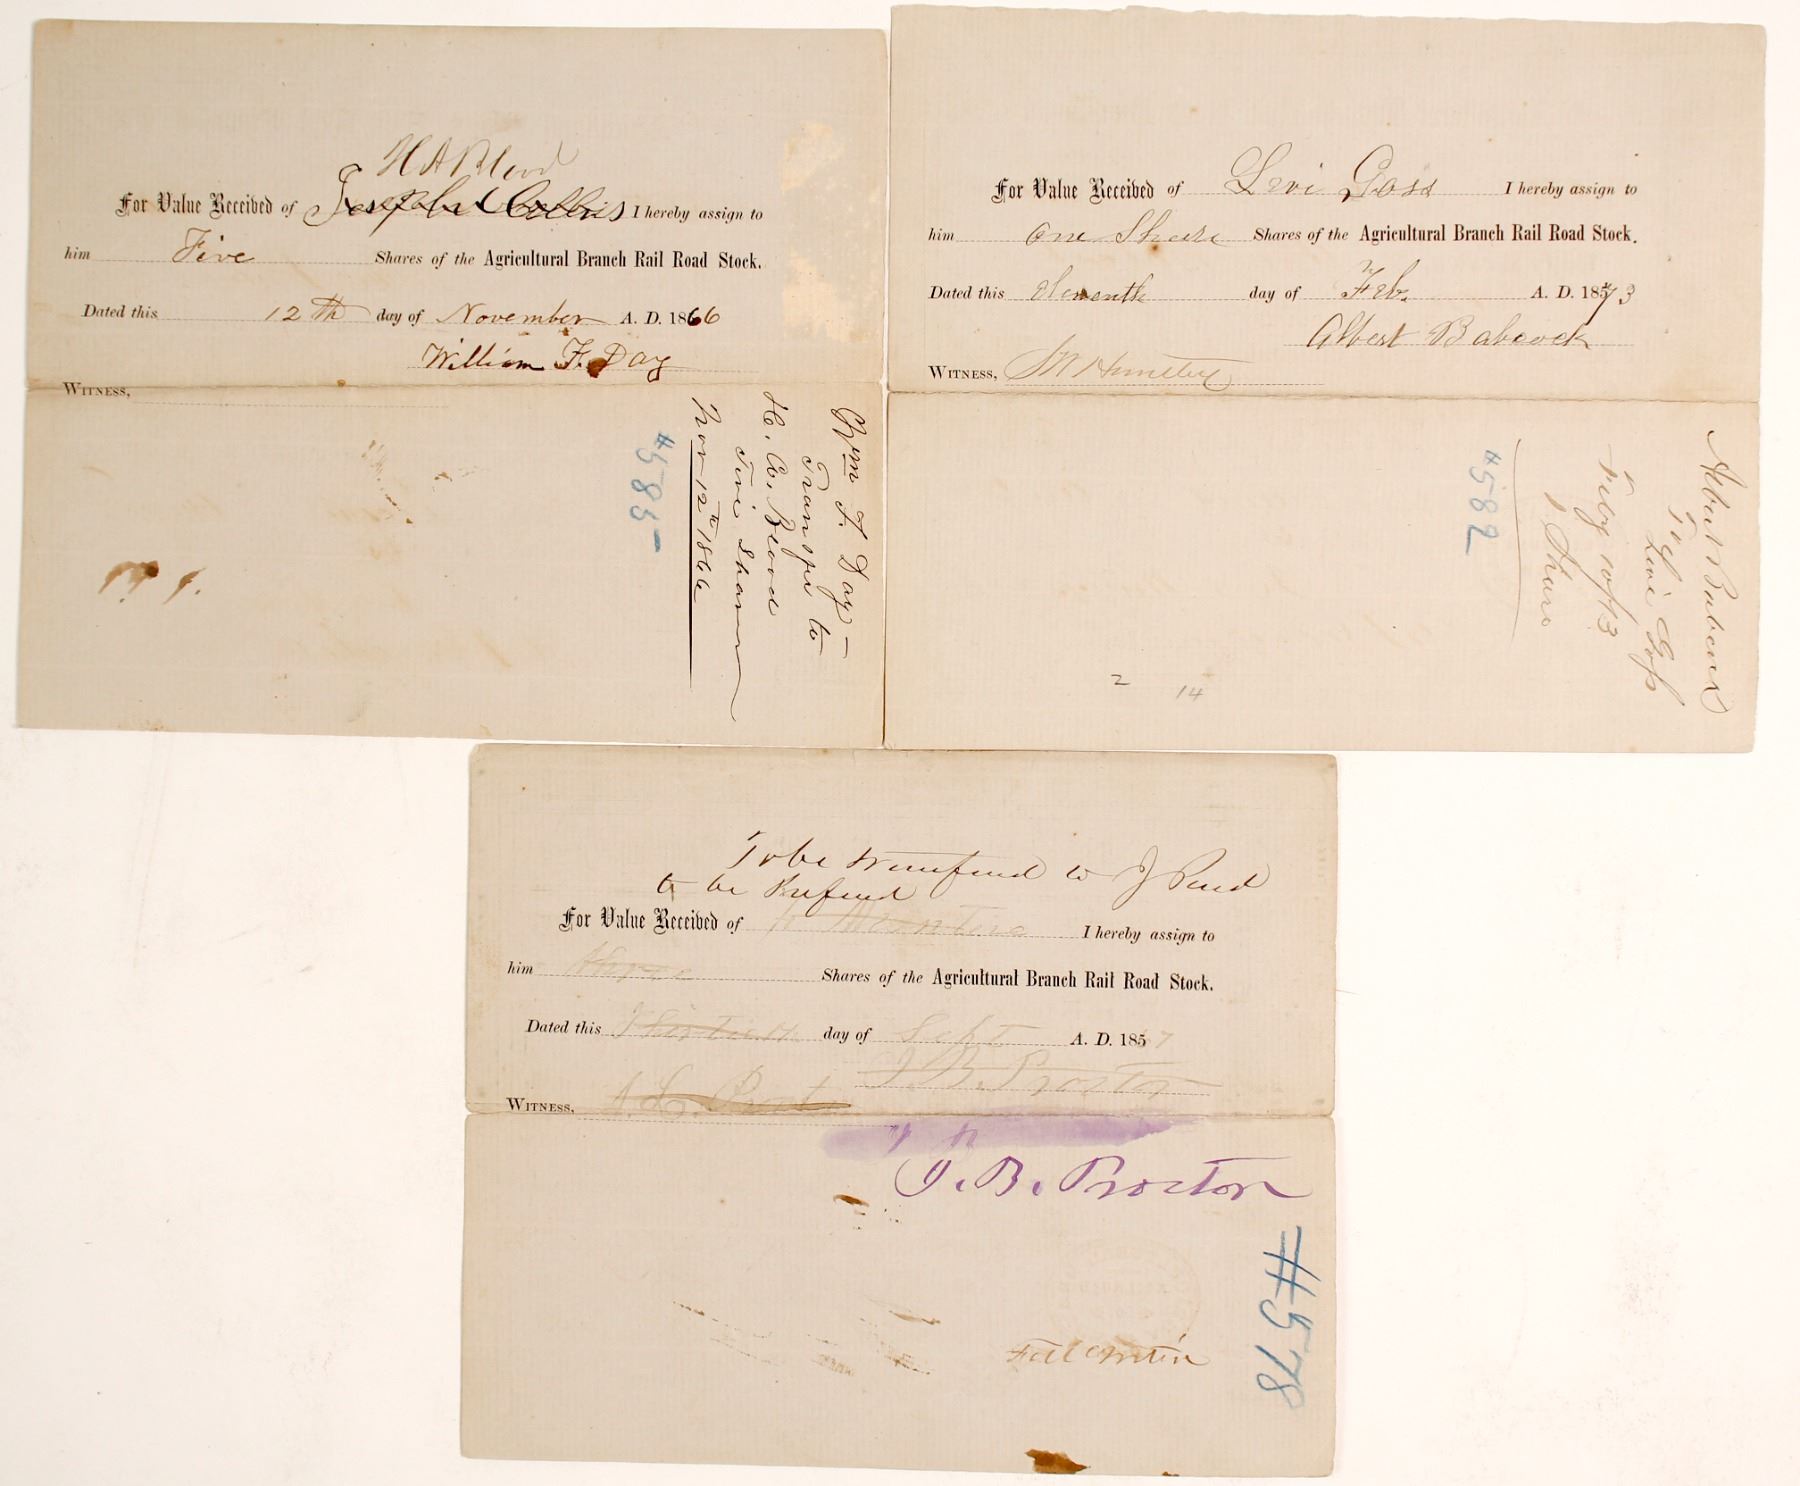 H A Blood
For Value Received of Joseph Collins I hereby assign to
him Five Shares of the Agricultural Branch Rail Road Stock.
Dated this 12th day of November A. D. 1866
William F. Day
Witness,
Wm F. Day -
Transfer to
H. A. Blood
Five Shares
Nov 12th 1866
#585-
For Value Received of Levi Goss I hereby assign to
him One Share Shares of the Agricultural Branch Rail Road Stock.
Dated this Eleventh day of Feb. A. D. 1873
Albert Babcock
Witness,
Albert Babcock
To
Levi Goss
1 Share
#582
2 14
To be transferred to J
to be
For Value Received of I hereby assign to
him Three Shares of the Agricultural Branch Rail Road Stock.
Dated this Thirtieth day of Sept A. D. 1857
J. B. Proctor
Witness,
J. B. Proctor
#578